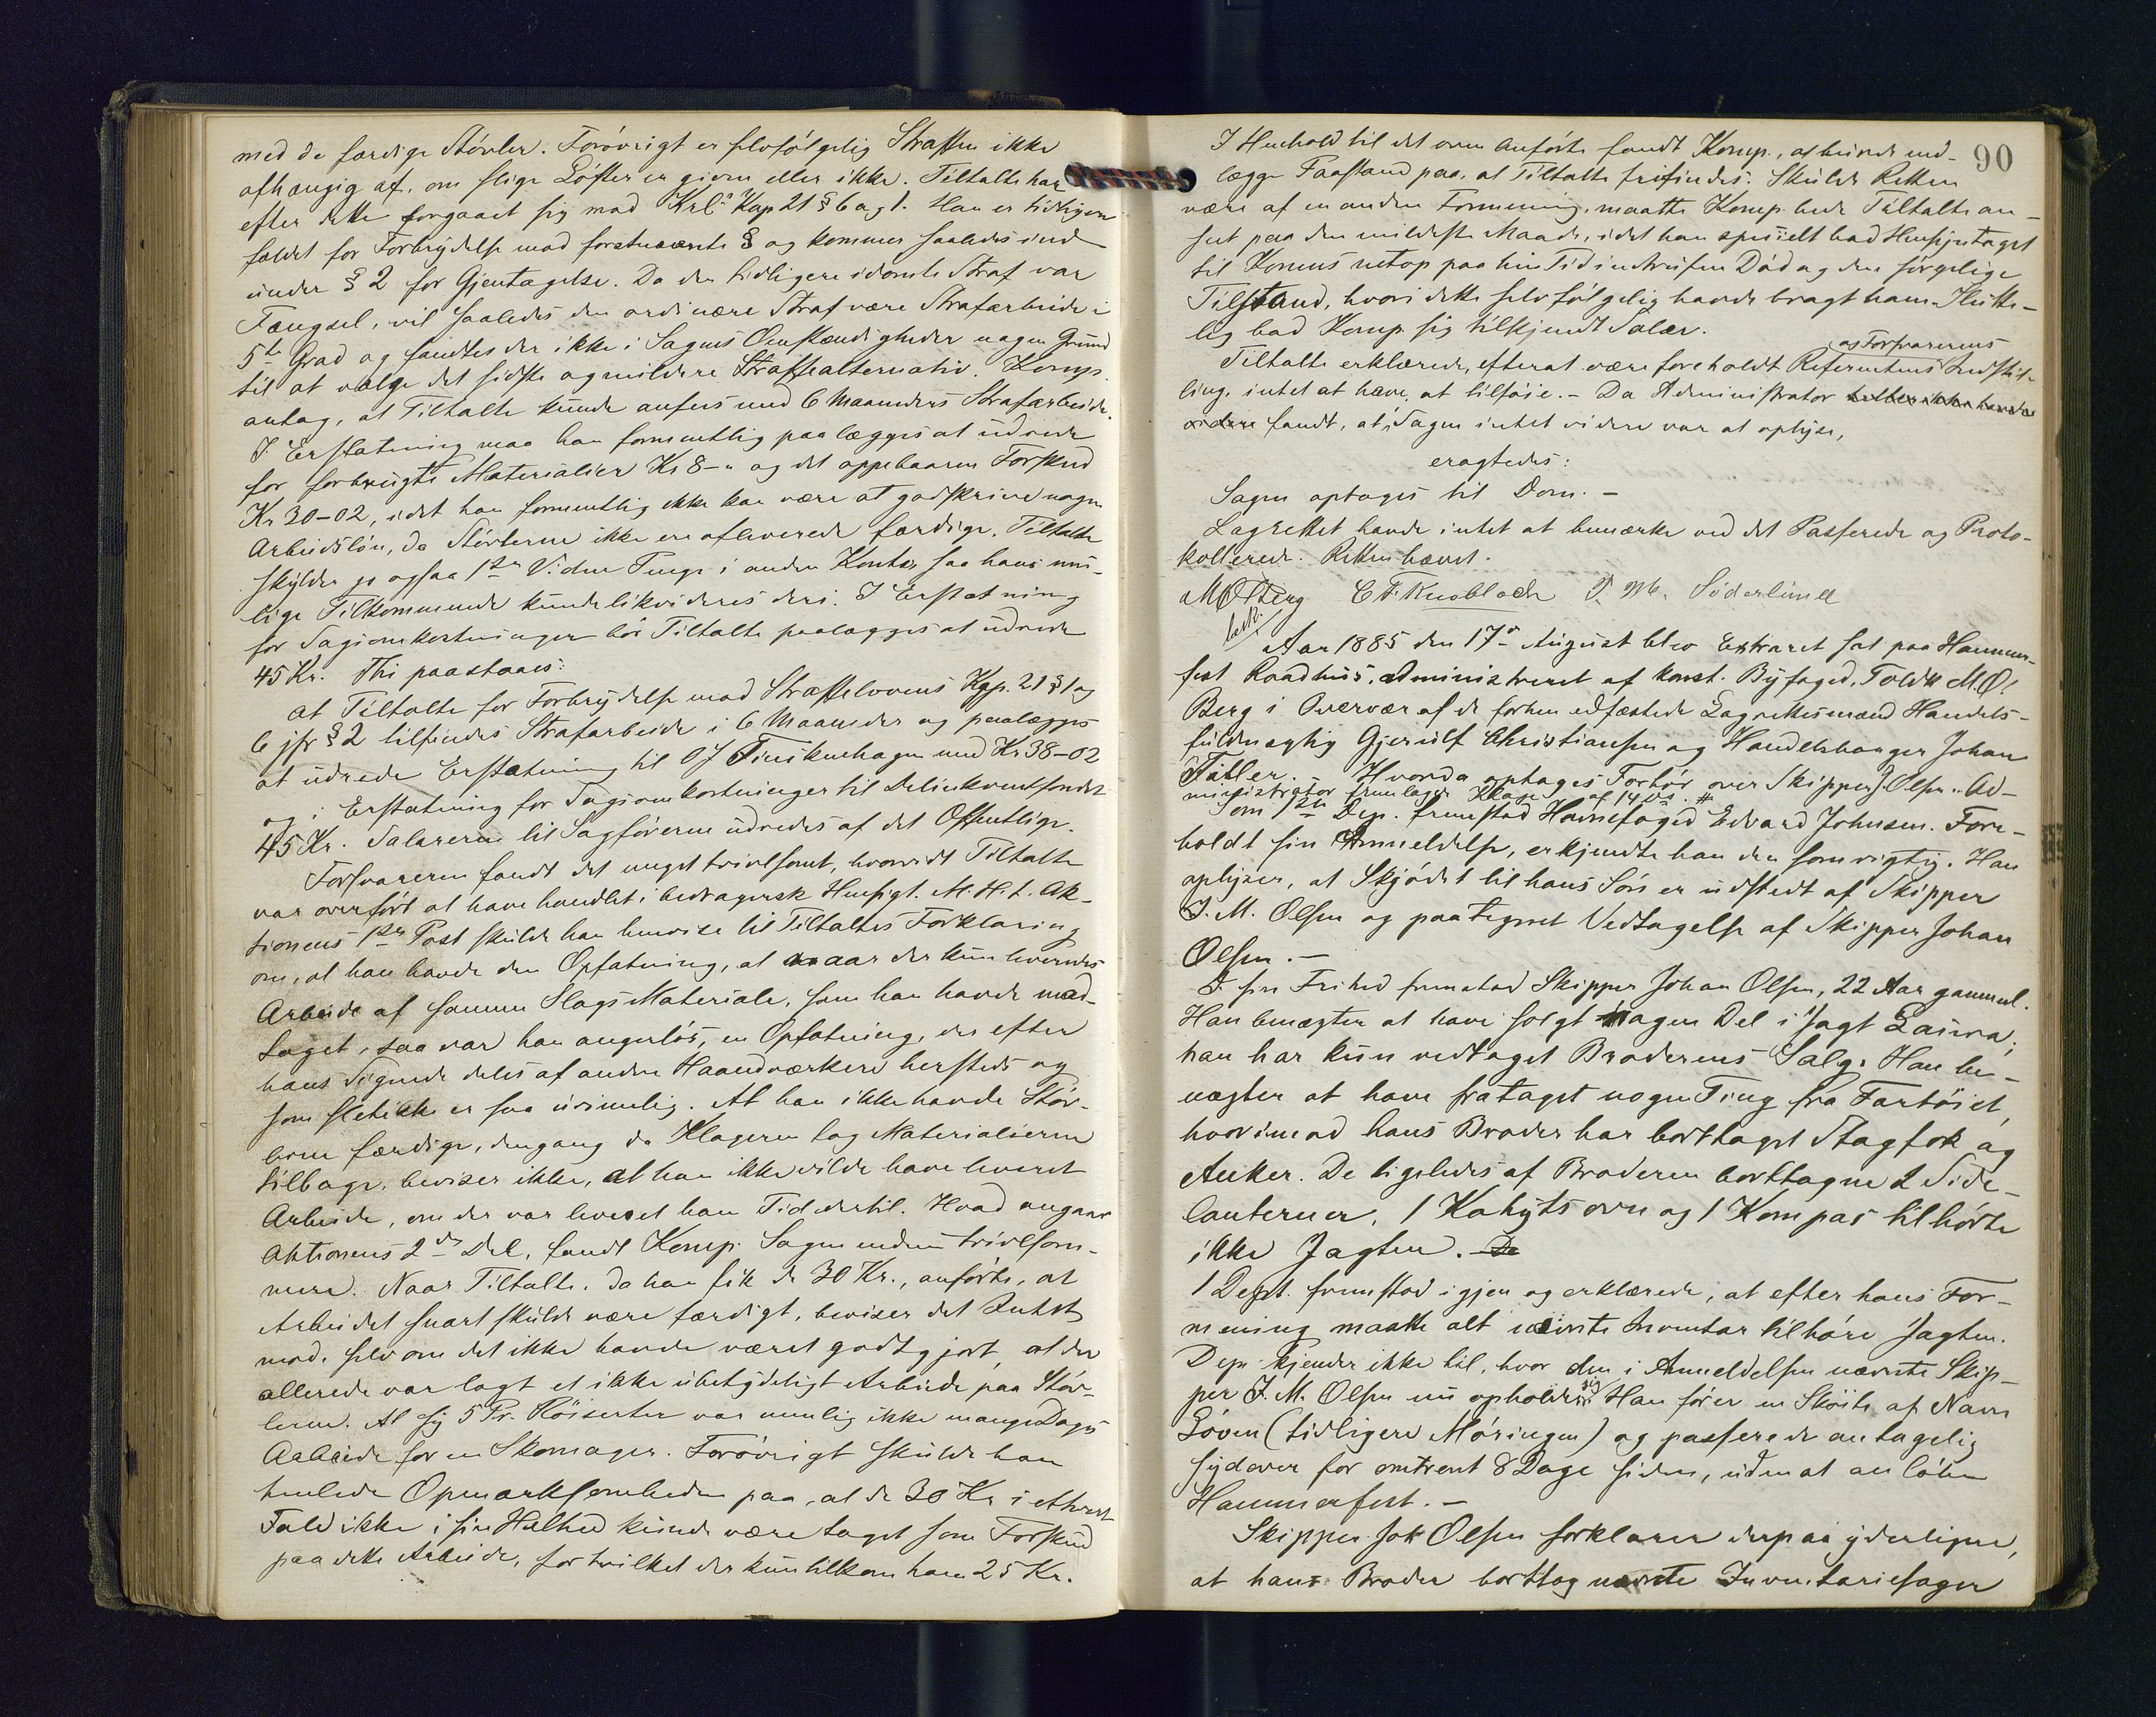 med de færdige Støvler. Forøvrigt er selvfølgelig Straffen ikke
afhængig af, om slige Løfter er given eller ikke. Tiltalte har
efter dette forgaaet sig mod Krl's Kap 21 § 6 og 1. Han er tidligere
fældet for Forbrydelse mod forstnævnte § og kommer saaledes ind
under § 2 for Gjentagelse. Da den tidligere idømte Straf var
Fængsel, vil saaledes den ordinære Straf være Strafarbeide i
5te Grad og fandtes der ikke i Sagens Omstændigheder nogen Grund
til at vælge det sidste og mildere Straffealternativ. Komp.
antog, at Tiltalte kunde ansees med 6 Maaneders Strafarbeide.
I Erstatning maa han formentlig paalægges at udrede
for forbrugte Materialier Kr 8-" og det oppebaarne Forskud
Kr 30-02, idet han formentlig ikke kan være at godskrive nogen
Arbeidsløn, da Støvlerne ikke ere afleverede færdige. Tiltalte
skylder jo ogsaa 1ste Vidne Penge i anden Konto, saa hans mu-
lige Tilkommende kunde likvideres deri. I Erstatning
for Sagsomkostninger bør Tiltalte paalægges at udrede
45 Kr. Thi paastaaes:
at Tiltalte for Forbrydelse mod Straffelovens Kap. 21 § 1 og
6 jfr § 2 tilfindes Strafarbeide i 6 Maaneder og paalægges
at udrede Erstatning til O J Finckenhagen med Kr 38-02
og i Erstatning for Sagsomkostninger til Delinkventfondet
45 Kr. Salarerne til Sagførerne udredes af det Offentlige.
Forsvareren fandt det meget tvivlsomt, hvorvidt Tiltalte
var overført at have handlet i bedragersk Hensigt. M. H. t. Ak-
tionens 1ste Post skulde han henvise til Tiltaltes Forklaring
om, at han havde den Opfatning, at naar der kun leveredes
Arbeide af samme Slags Materiale, som han havde mod-
taget, saa var han angerløs, en Opfatning, der efter
hans Sigende deles af andre Haandværkere hersteds og
som slet ikke er saa urimelig. At han ikke havde Støv-
lerne færdige, dengang da Klageren tog Materialierne
tilbage, beviser ikke, at han ikke vilde have leveret
Arbeide, om der var levnet ham Tid dertil. Hvad angaar
Aktionens 2den Del, fandt Komp. Sagen endnu tvivlsom-
mere. Naar Tiltalte, da han fik de 30 Kr., anførte, at
Arbeidet snart skulde være færdigt, beviser det Intet
mod, selv om det ikke havde været godtgjort, at der
allerede var lagt et ikke ubetydeligt Arbeide paa Støv-
lerne. At sy 5 Pr. Höiserter var nemlig ikke mange Dages
Arbeide for en Skomager. Forøvrigt skulde han
henlede Opmærksomheden paa, at de 30 Kr i ethvert
Fald ikke i sin Helhed kunde være taget som Forskud
paa dette Arbeide, for hvilket der kun tilkom ham 25 Kr.
90
I Henhold til det oven Anførte fandt Komp., at burde ned-
lægge Paastand paa, at Tiltalte frifindes. Skulde Retten
være af en anden Formening, maatte Komp. bede Tiltalte an-
seet paa den mildeste Maade, idet han specielt bad Hensyn taget
til Konens netop paa hin Tid indtrufne Død og den sørgelige
Tilstand, hvori dette selvfølgelig havde bragt ham. Slutte-
lig bad Komp. sig tilkjendt Salær.
og Forsvarerens
Tiltalte erklærede, efterat være foreholdt Referentens Indstil-
ling, intet at have at tilføie. - Da Administrator
videre fandt, at i Sagen intet videre var at oplyse,
eragtedes:
Sagen optages til Dom. -
Lagrettet havde intet at bemærke ved det Passerede og Proto-
kollerede. Retten hævet.
M Ø Berg C F. Knobloch J. M. Söderlund
konst.
Aar 1885 den 17de August blev Extraret sat paa Hammer-
fest Raadhus, administreret af konst. Byfoged, Toldk M. Ø.
Berg i Overvær af de forhen edfæstede Lagrettesmænd Handels-
fuldmægtig Gjerulf Christiansen og Handelsborger Johan
Tatler. - Hvorda optages Forhør over Skipper J. Olsen. Ad-
ministrator fremlagde Klage af 14 ds. #
Som 1ste Dep. fremstod Havnefoged Edvard Johnsen. Fore-
holdt sin Anmeldelse, erkjendte han den som rigtig. Han
oplyser, at Skjødet til hans Søn er udstedt af Skipper
J. M. Olsen og paategnet Vedtagelse af Skipper Johan
Olsen. -
I sin Frihed fremstod Skipper Johan Olsen, 22 Aar gammel.
Han benægter at have solgt nogen Del i Jagt Laura;
han har kun vedtaget Broderens Salg. Han be-
nægter at have frataget nogen Ting fra Fartøiet,
hvorimod hans Broder har borttaget Stagfok og
Anker. De ligeledes af Broderen borttagne 2 Side-
lanterner, 1 Kahytsovn og 1 Kompas tilhørte
ikke Jagten. De
1 Dept. fremstod igjen og erklærede, at efter hans For-
mening maatte alt nævnte Inventar tilhøre Jagten.
Dep. kjender ikke til, hvor den i Anmeldelsen nævnte Skip-
per J. M. Olsen nu opholder sig. Han fører en Skøite af Navn
Løven (tidligere Møringen) og passerede antagelig
sydover for omtrent 8 Dage siden, uden at anløbe
Hammerfest. -
Skipper Joh Olsen forklarer derpaa yderligere,
at hans Broder borttog nævnte Inventariesager